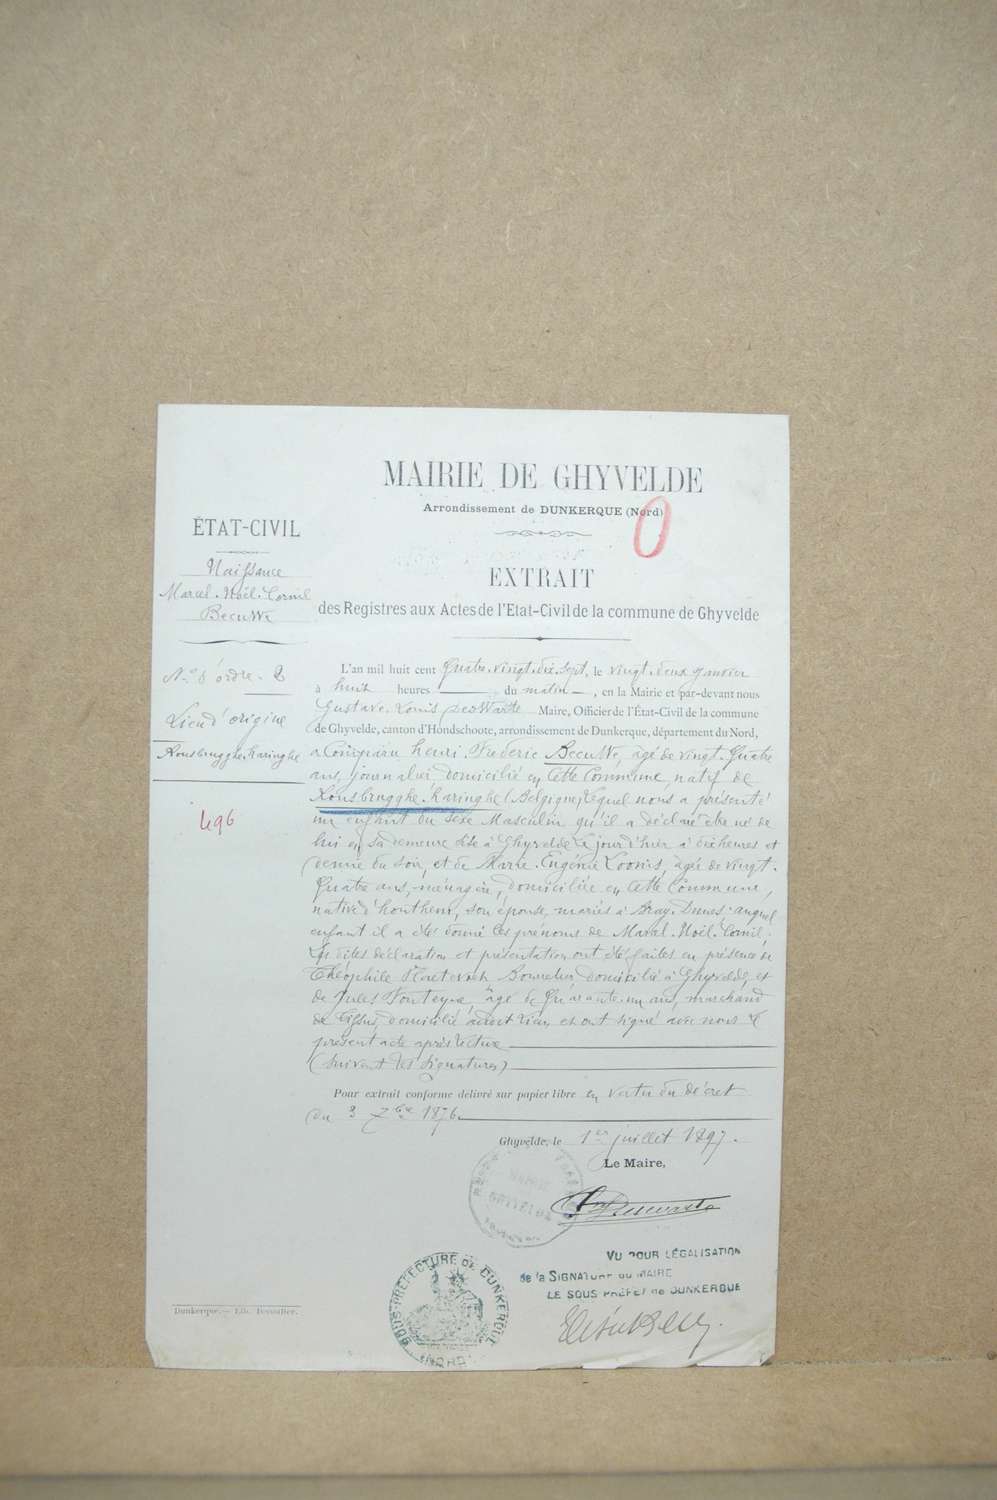 MAIRIE DE GHYVELDE
Arrondissement de DUNKERQUE (Nord)
O
EXTRAIT
des Registres aux Actes de l'Etat-Civil de la commune de Ghyvelde
ÉTAT-CIVIL
Naissance
Marcel-Noël-Cornil
Becuwe
N.o d'ordre - 2
Lieu d'origine
Rousbrugghe-Haringhe
496
L'an mil huit cent Quatre-vingt-dix-sept, le vingt-deux janvier
à huit heures du matin, en la Mairie et par-devant nous
Gustave-Louis Maire, Officier de l'État-Civil de la commune
de Ghyvelde, canton d'Hondschoote, arrondissement de Dunkerque, département du Nord,
a Comparu henri-Frédéric Becuwe, âgé de vingt-Quatre
ans, journalier, domicilié en Cette Commune, natif de
Rousbrugghe-haringhe (Belgique) lequel nous a présenté
un enfant du Sexe Masculin qu'il a déclaré être né de
lui en sa demeure sise à Ghyvelde le jour d'hier à dix heures et
demie du Soir, et de Marie-Eugénie Loonis, âgée de vingt-
Quatre ans, ménagère, domiciliée en Cette Commune,
native d'houthem, son épouse, mariés à Bray-Dunes; auquel
enfant il a été donné les prénoms de Marcel-Noël-Cornil;
Les dites déclaration et présentation ont été faites en présence de
Théophile domicilié à Ghyvelde, et
de Jules Fonteyne, âgé de Quarante-un ans, marchand
de tissus, domicilié audit lieu, et ont signé avec nous le
présent acte après lecture
(suivent les signatures)
Pour extrait conforme délivré sur papier libre en vertu du décret
du 3 7bre 1876.
Ghyvelde, le 1er juillet 1897.
Le Maire,
VU POUR LÉGALISATION
de la SIGNATURE du MAIRE
LE SOUS PRÉFET de DUNKERQUE
SOUS-PRÉFECTURE DE DUNKERQUE
(NORD)
Dunkerque. —